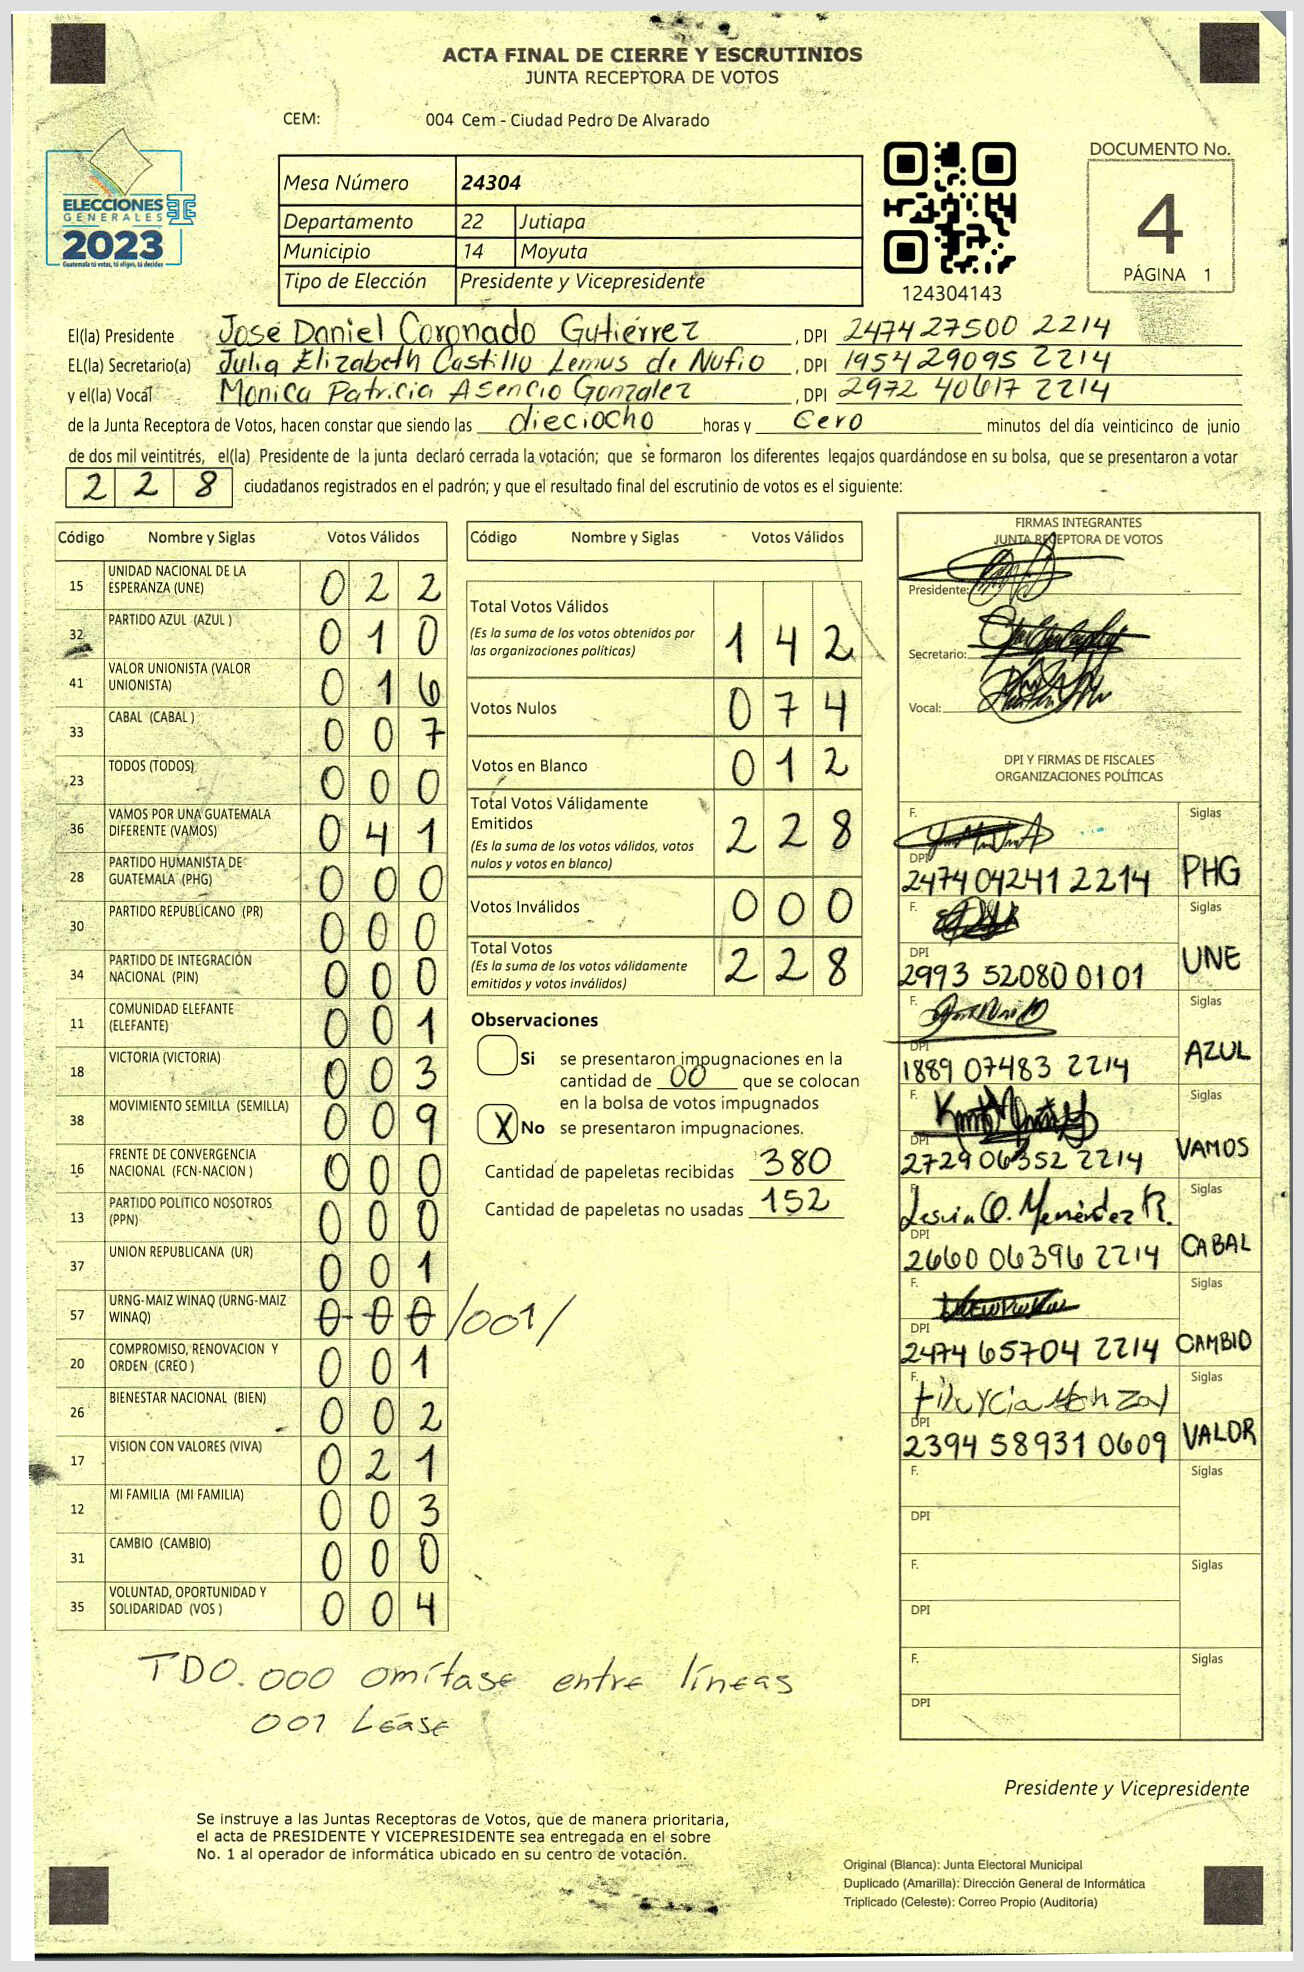 ACTA FINAL DE CIERRE Y ESCRUTINIOS
JUNTA RECEPTORA DE VOTOS
CEM: 004 Cem - Ciudad Pedro De Alvarado
ELECCIONES
GENERALES
2023
Guatemala tú votas, tú eliges, tú decides
Mesa Número 24304
Departamento 22 Jutiapa
Municipio 14 Moyuta
Tipo de Elección Presidente y Vicepresidente
124304143
DOCUMENTO No.
4
PÁGINA 1
El(la) Presidente José Daniel Coronado Gutiérrez , DPI 2474 27500 2214
EL(la) Secretario(a) Julia Elizabeth Castillo Lemus de Nufio , DPI 1954 29095 2214
y el(la) Vocal Monica Patricia Asencio Gonzalez , DPI 2972 40617 2214
de la Junta Receptora de Votos, hacen constar que siendo las dieciocho horas y cero minutos del día veinticinco de junio
de dos mil veintitrés, el(la) Presidente de la junta declaró cerrada la votación; que se formaron los diferentes legajos quardándose en su bolsa, que se presentaron a votar
2 2 8 ciudadanos registrados en el padrón; y que el resultado final del escrutinio de votos es el siguiente:
Código Nombre y Siglas Votos Válidos
15 UNIDAD NACIONAL DE LA ESPERANZA (UNE) 0 2 2
32 PARTIDO AZUL (AZUL ) 0 1 0
41 VALOR UNIONISTA (VALOR UNIONISTA) 0 1 6
33 CABAL (CABAL ) 0 0 7
23 TODOS (TODOS) 0 0 0
36 VAMOS POR UNA GUATEMALA DIFERENTE (VAMOS) 0 4 1
28 PARTIDO HUMANISTA DE GUATEMALA (PHG) 0 0 0
30 PARTIDO REPUBLICANO (PR) 0 0 0
34 PARTIDO DE INTEGRACIÓN NACIONAL (PIN) 0 0 0
11 COMUNIDAD ELEFANTE (ELEFANTE) 0 0 1
18 VICTORIA (VICTORIA) 0 0 3
38 MOVIMIENTO SEMILLA (SEMILLA) 0 0 9
16 FRENTE DE CONVERGENCIA NACIONAL (FCN-NACION ) 0 0 0
13 PARTIDO POLITICO NOSOTROS (PPN) 0 0 0
37 UNION REPUBLICANA (UR) 0 0 1
57 URNG-MAIZ WINAQ (URNG-MAIZ WINAQ) 0 0 0 /001/
20 COMPROMISO, RENOVACION Y ORDEN (CREO ) 0 0 1
26 BIENESTAR NACIONAL (BIEN) 0 0 2
17 VISION CON VALORES (VIVA) 0 2 1
12 MI FAMILIA (MI FAMILIA) 0 0 3
31 CAMBIO (CAMBIO) 0 0 0
35 VOLUNTAD, OPORTUNIDAD Y SOLIDARIDAD (VOS ) 0 0 4
Código Nombre y Siglas Votos Válidos
Total Votos Válidos 1 4 2
(Es la suma de los votos obtenidos por
las organizaciones políticas)
Votos Nulos 0 7 4
Votos en Blanco 0 1 2
Total Votos Válidamente
Emitidos 2 2 8
(Es la suma de los votos válidos, votos
nulos y votos en blanco)
Votos Inválidos 0 0 0
Total Votos 2 2 8
(Es la suma de los votos válidamente
emitidos y votos inválidos)
Observaciones
Si se presentaron impugnaciones en la
cantidad de 00 que se colocan
en la bolsa de votos impugnados
X No se presentaron impugnaciones.
Cantidad de papeletas recibidas 380
Cantidad de papeletas no usadas 152
FIRMAS INTEGRANTES
JUNTA RECEPTORA DE VOTOS
Presidente:
Secretario:
Vocal:
DPI Y FIRMAS DE FISCALES
ORGANIZACIONES POLÍTICAS
F. Siglas
DPI 2474 04241 2214 PHG
F. Siglas
DPI 2993 52080 0101 UNE
F. Siglas
DPI 1889 07483 2214 AZUL
F.
DPI 2729 06352 2214 VAMOS
F. Lesvia O. Menéndez R. Siglas
DPI 2660 06396 2214 CABAL
F. Siglas
DPI 2474 65704 2214 CAMBIO
F. Siglas
DPI 2394 58931 0609 VALOR
F. Siglas
DPI
F. Siglas
DPI
F. Siglas
DPI
TDO. 000 omítase entre líneas
001 Léase
Presidente y Vicepresidente
Se instruye a las Juntas Receptoras de Votos, que de manera prioritaria,
el acta de PRESIDENTE Y VICEPRESIDENTE sea entregada en el sobre
No. 1 al operador de informática ubicado en su centro de votación.
Original (Blanca): Junta Electoral Municipal
Duplicado (Amarilla): Dirección General de Informática
Triplicado (Celeste): Correo Propio (Auditoría)